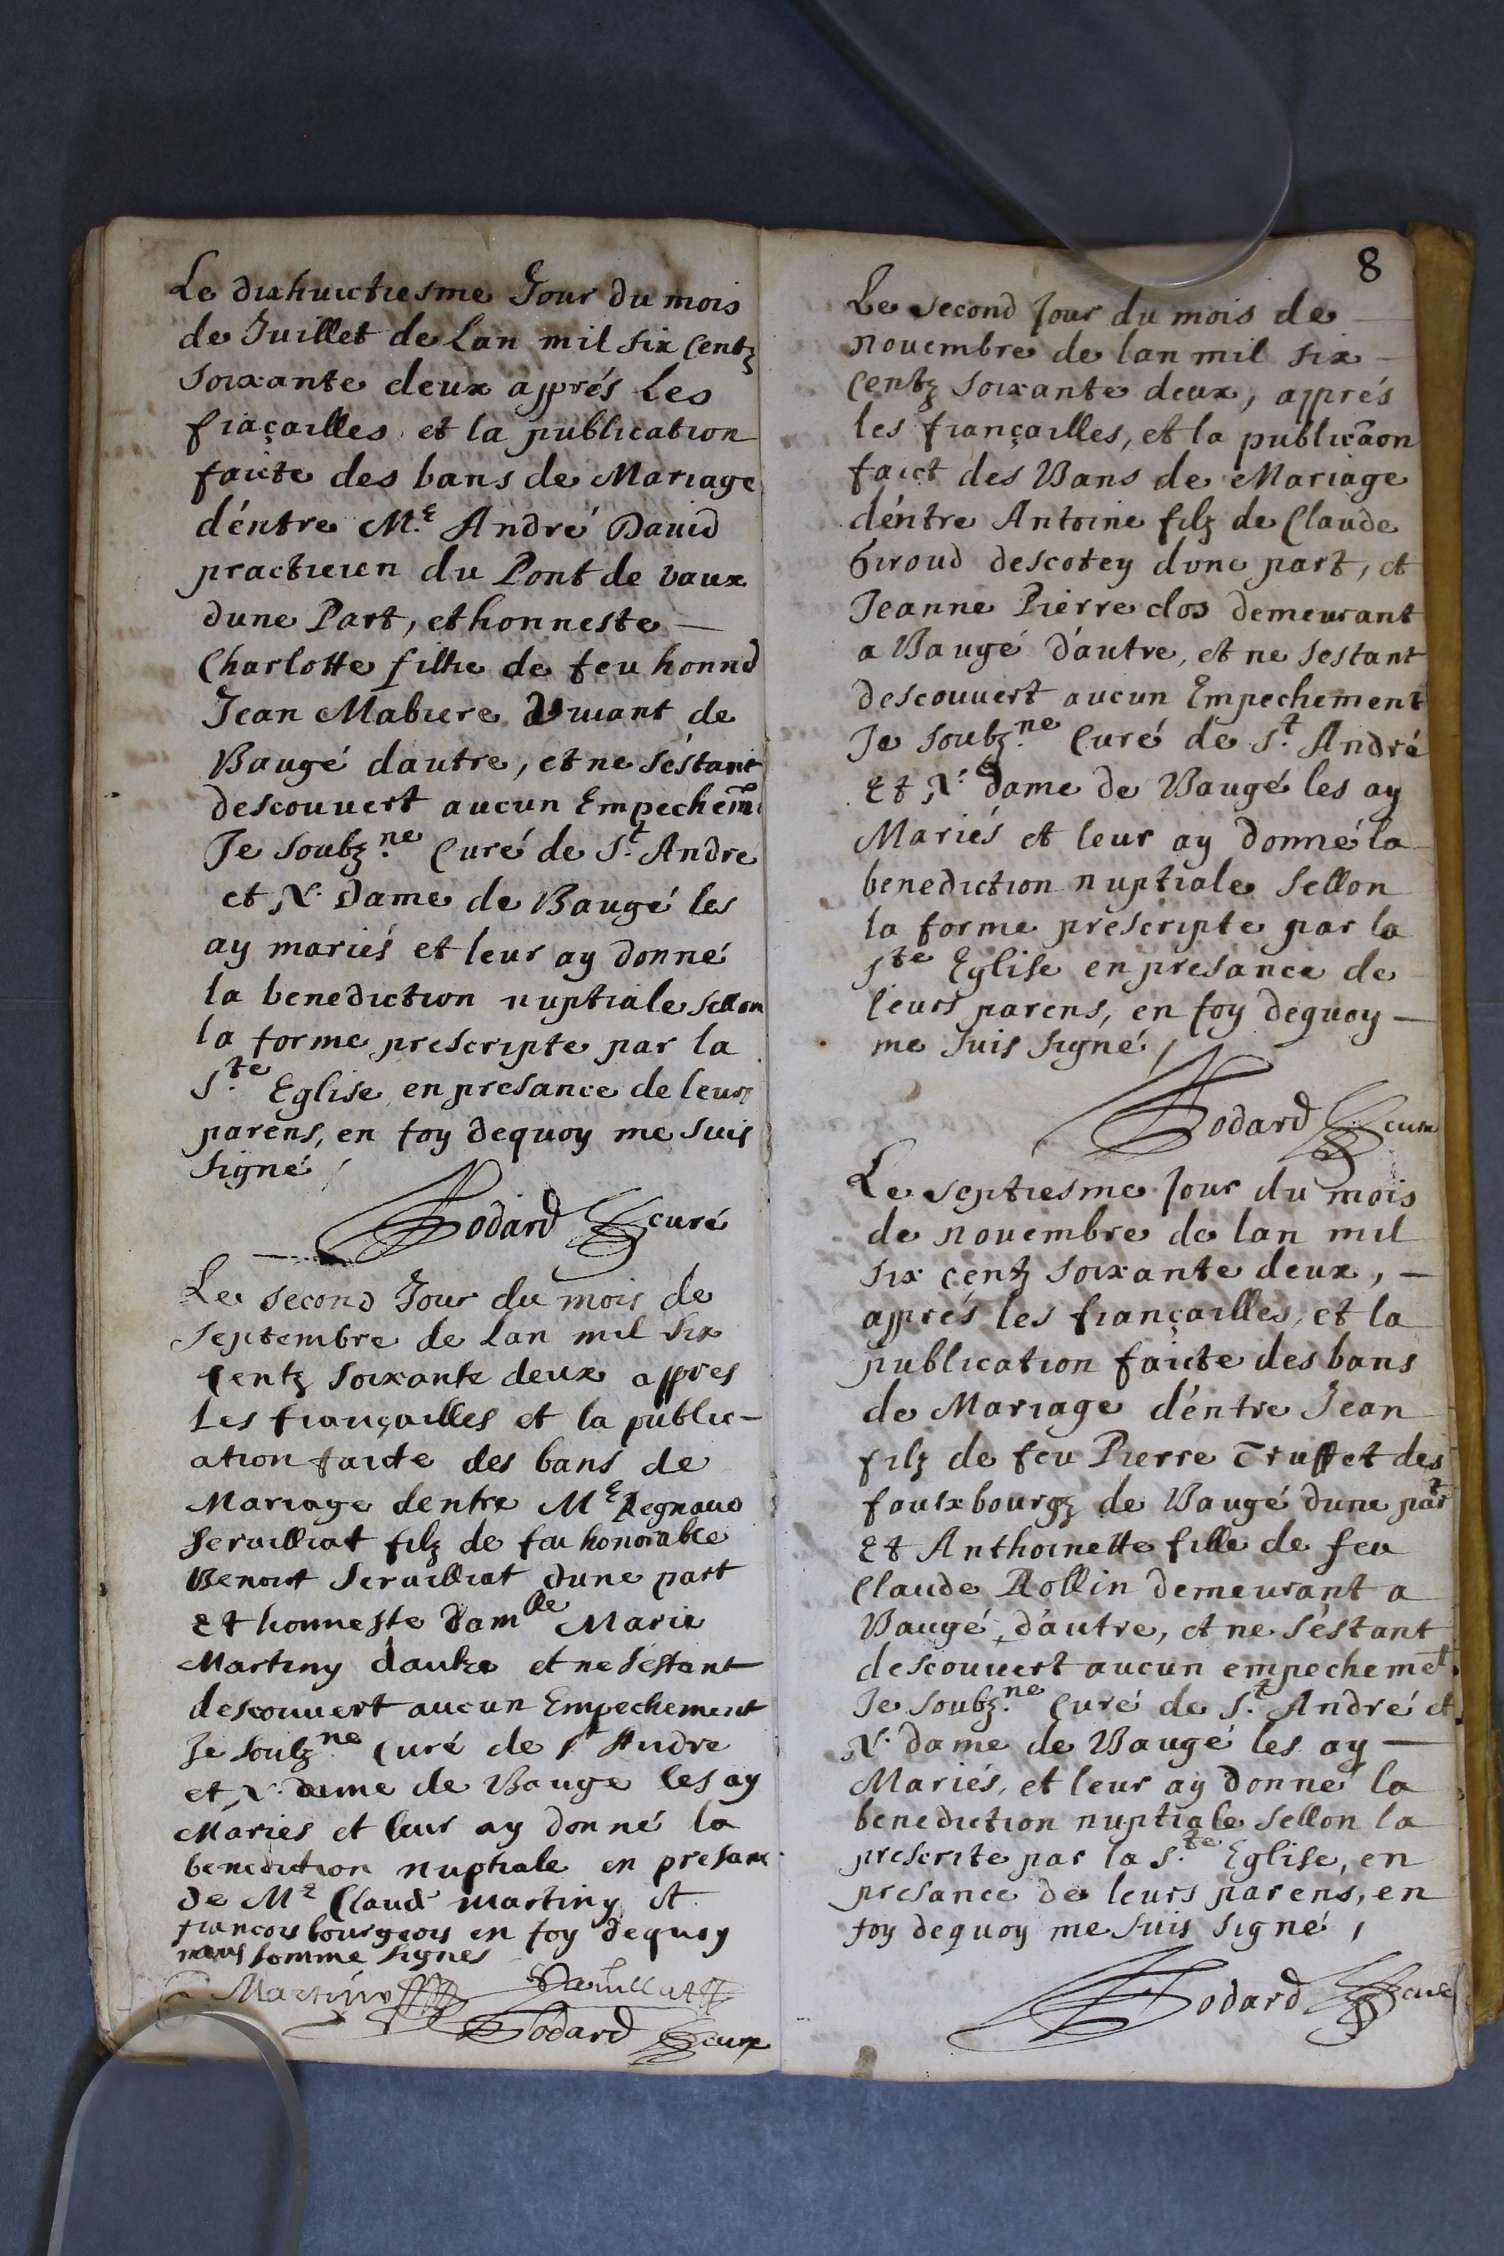 Le dixhuictiesme Jour du mois
de Juillet de Lan mil six Centz
soixante deux apprés Les
fiaçailles et la publication
faicte des bans de Mariage
d'éntre M.e André David
practicien du Pont de vaux
dune Part, et honneste —
Charlotte fillie de feu honnd
Jean Mabiere vivant de
Baugé dautre, et ne s'éstant
descouvert aucun Empechem̃
Je soubz.ne Curé de S.t Andre
et N. Dame de Baugé les
ay mariés et leur ay donné
la benediction nuptiale sellon
la forme prescripte par la
S.te Eglise en presance de leurs
parens, en foy dequoy me suis
signé,
Godard curé
Le second Jour du mois de
Septembre de Lan mil six
Centz soixante deux appres
Les fiançailles et la public-
ation faicte des bans de
Mariage dentre M.e Regnaud
Servilliat filz de feu honorable
Benoist Servilliat dune part
Et honneste damlle Marie
Martiny d'autre et ne s'éstant
descouvert aucun Empechement
Je soubz.ne Curé de St Andre
et N. dame de Bauge les ay
Mariés et leur ay donné la
benediction nuptiale en presance
de M.e Claude Martiny et
francois bourgeois en foy dequoy
nous somme signes
Martiny
Godard cure
8
Le second Jour du mois de —
Novembre de lan mil six —
Centz soixante deux, apprés
les fiançailles, et la publica͠on
faict des Bans de Mariage
d'éntre Antoine filz de Claude
Giroud descotey dune part, et
Jeanne Pierreclos demeurant
a Baugé d'áutre, et ne sestant
descouvert aucun Empechement
Je soubz.ne Curé de S.t André
Et N. dame de Baugé les ay
Mariés et leur ay donné la
benediction nuptiale sellon
la forme prescripte par la
Ste Eglise en presance de
leurs parens, en foy dequoy —
me suis signé,
Godard cure
Le septiesme Jour du mois
de novembre de lan mil
six centz soixante deux, —
apprés les fiançailles, et la
publication faicte des bans
de Mariage d'éntre Jean
filz de feu Pierre Truffet des
fauxbourgz de Baugé dune part
Et Anthoinette fille de feu
Claude Rollin demeurant a
Baugé, d'áutre, et ne s'éstant
descouvert aucun empechemet.
Je soubz.ne Curé de S.t André et
N. dame de Baugé les ay —
Mariés, et leur ay donné la
benediction nuptiale sellon la
prescrite par la S.te Eglise, en
presance de leurs parens, en
foy dequoy me suis signé,
Godard cure